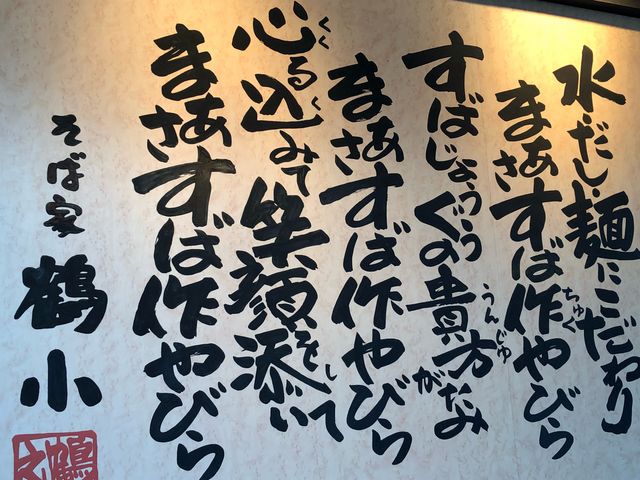 水だし・麺にこだわり
まあさすば作やびら
すばじょううぐの貴方がたみ
まあさすば作やびら
心る込みて笑顔添いして
まあさすば作やびら
そば家 鶴小